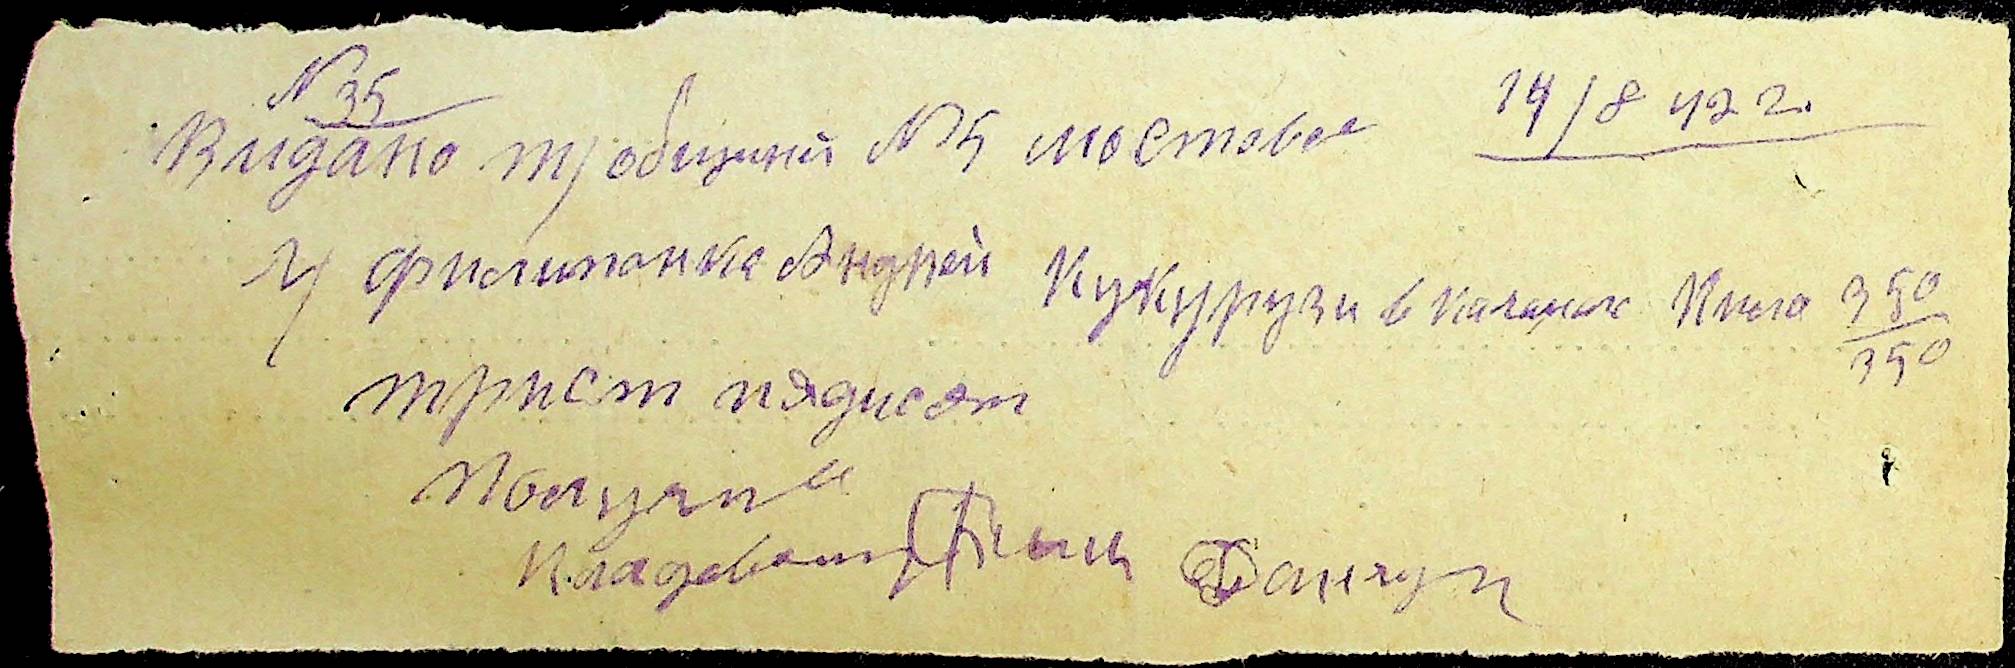 N 35
14/8 42 г.
Видано тр общиний N 5 мостовое
Филипонка Андрей Кукурузи в качанах Кило 350
350
трист пядисят
Получил
Кладовощ